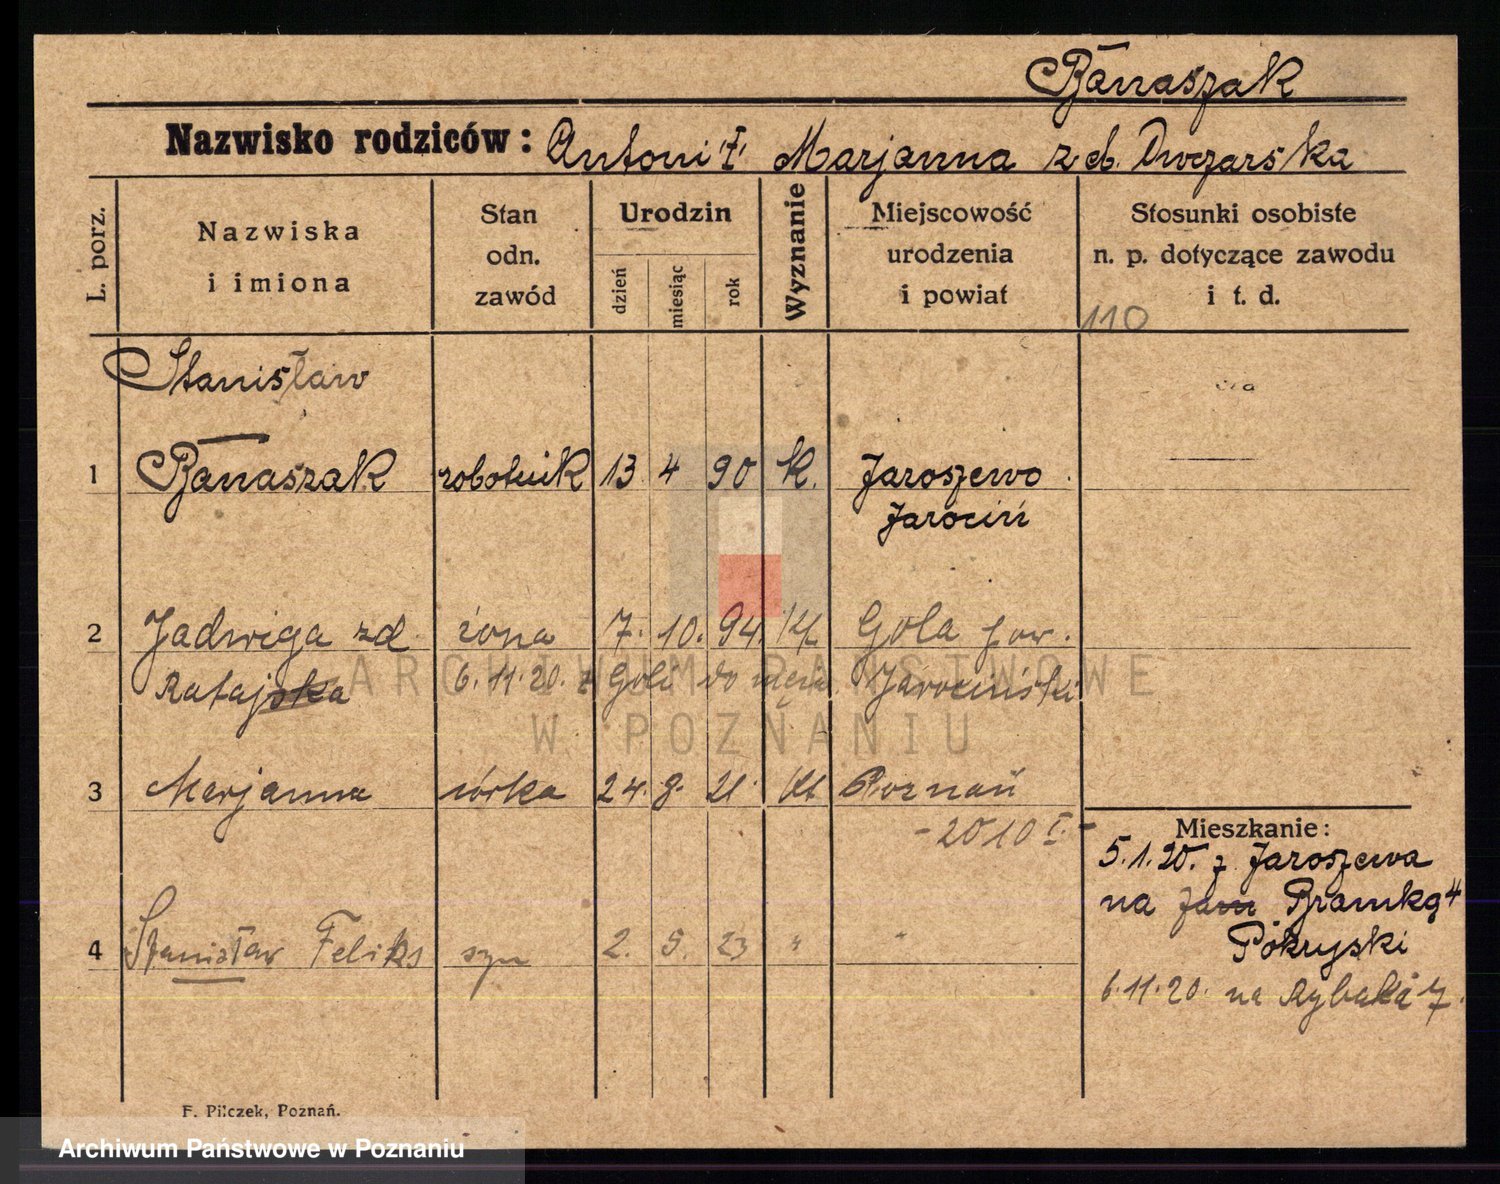 Banaszak
Nazwisko rodziców: Antoni Marjanna z d. Owczarska
L. porz.
Nazwiska i imiona
Stan odn. zawód
Urodzin
dzień
miesiąc
rok
Wyznanie
Miejscowość urodzenia i powiat
Stosunki osobiste n. p. dotyczące zawodu i t. d.
110
Stanisław
1 Banaszak robotnik 13 4 90 k. Jaroszewo
Jarocin
2 Jadwiga zd. żona 7. 10. 94. kt. Gola pow.
Ratajska 6.11.20. z Goli do męża Jarociński
3 Marjanna córka 24. 8. 21. kt Poznań
- 2010 I. -
4 Stanisław Feliks syn 2. 5. 23 " "
Mieszkanie:
5.1.20. z Jaroszewa
na Bramką 4
Pokryski
6.11.20. na Rybaki 7.
F. Pilczek, Poznań.
ARCHIWUM PAŃSTWOWE
W POZNANIU
Archiwum Państwowe w Poznaniu